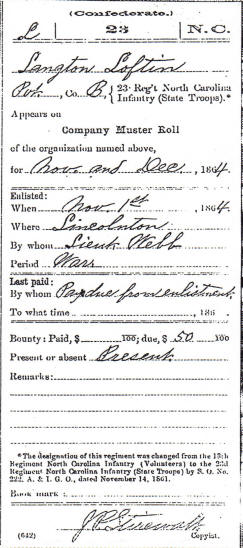 (Confederate.)
L 23 N.C.
Langton Loftin
Pvt., Co. B, { 23 Reg't North Carolina
Infantry (State Troops).*
Appears on
Company Muster Roll
of the organization named above,
for Nov. and Dec., 1864.
Enlisted:
When Nov. 1st, 1864.
Where Lincolnton
By whom Lieut Webb
Period War
Last paid:
By whom Pay due from enlistment
To what time , 186 .
Bounty: Paid, $ 100; due, $ 50 100
Present or absent Present
Remarks:
*The designation of this regiment was changed from the 13th
Regiment North Carolina Infantry (Volunteers) to the 23d
Regiment North Carolina Infantry (State Troops) by S. O. No.
222, A. & I. G. O., dated November 14, 1861.
Book mark:
(642) Copyist.